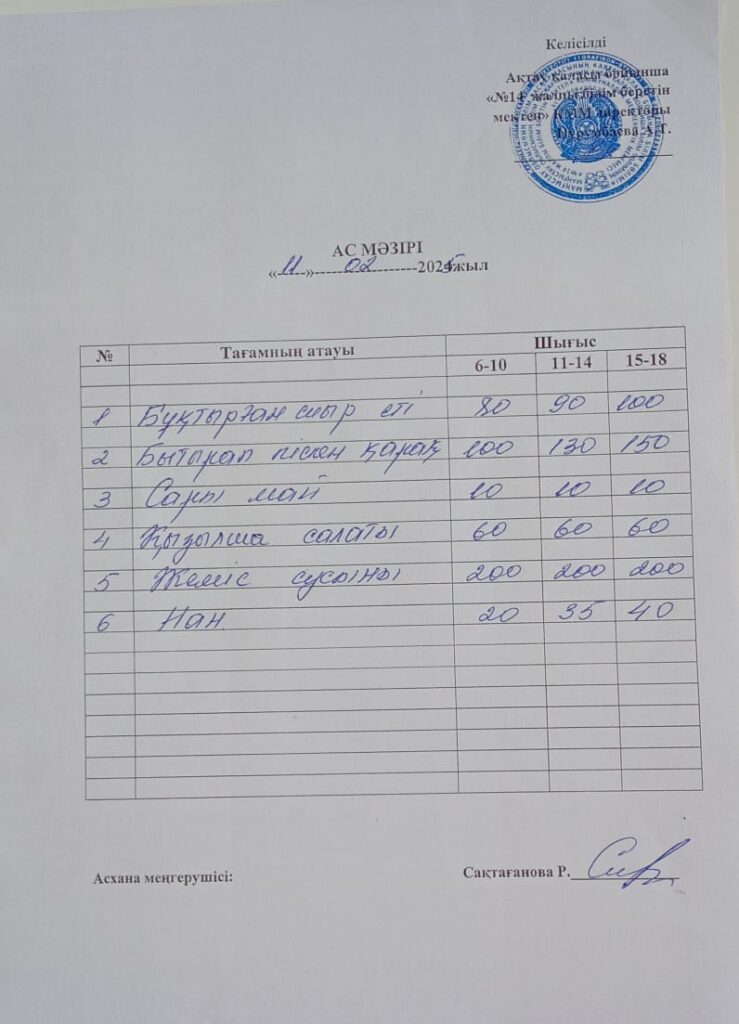 Келісілді
Ақтау қаласы бойынша
«№14 жалпы білім беретін
мектеп» КММ директоры
А.Т.
АС МӘЗІРІ
«11»02 2025жыл
№ Тағамның атауы Шығыс
6-10 11-14 15-18
1 Бұқтырған сиыр еті 80 90 100
2 Бытырап піскен қарақ 100 130 150
3 Сары май 10 10 10
4 Қызылша салаты 60 60 60
5 Жеміс сусыны 200 200 200
6 Нан 20 35 40
Асхана меңгерушісі: Сақтағанова Р.